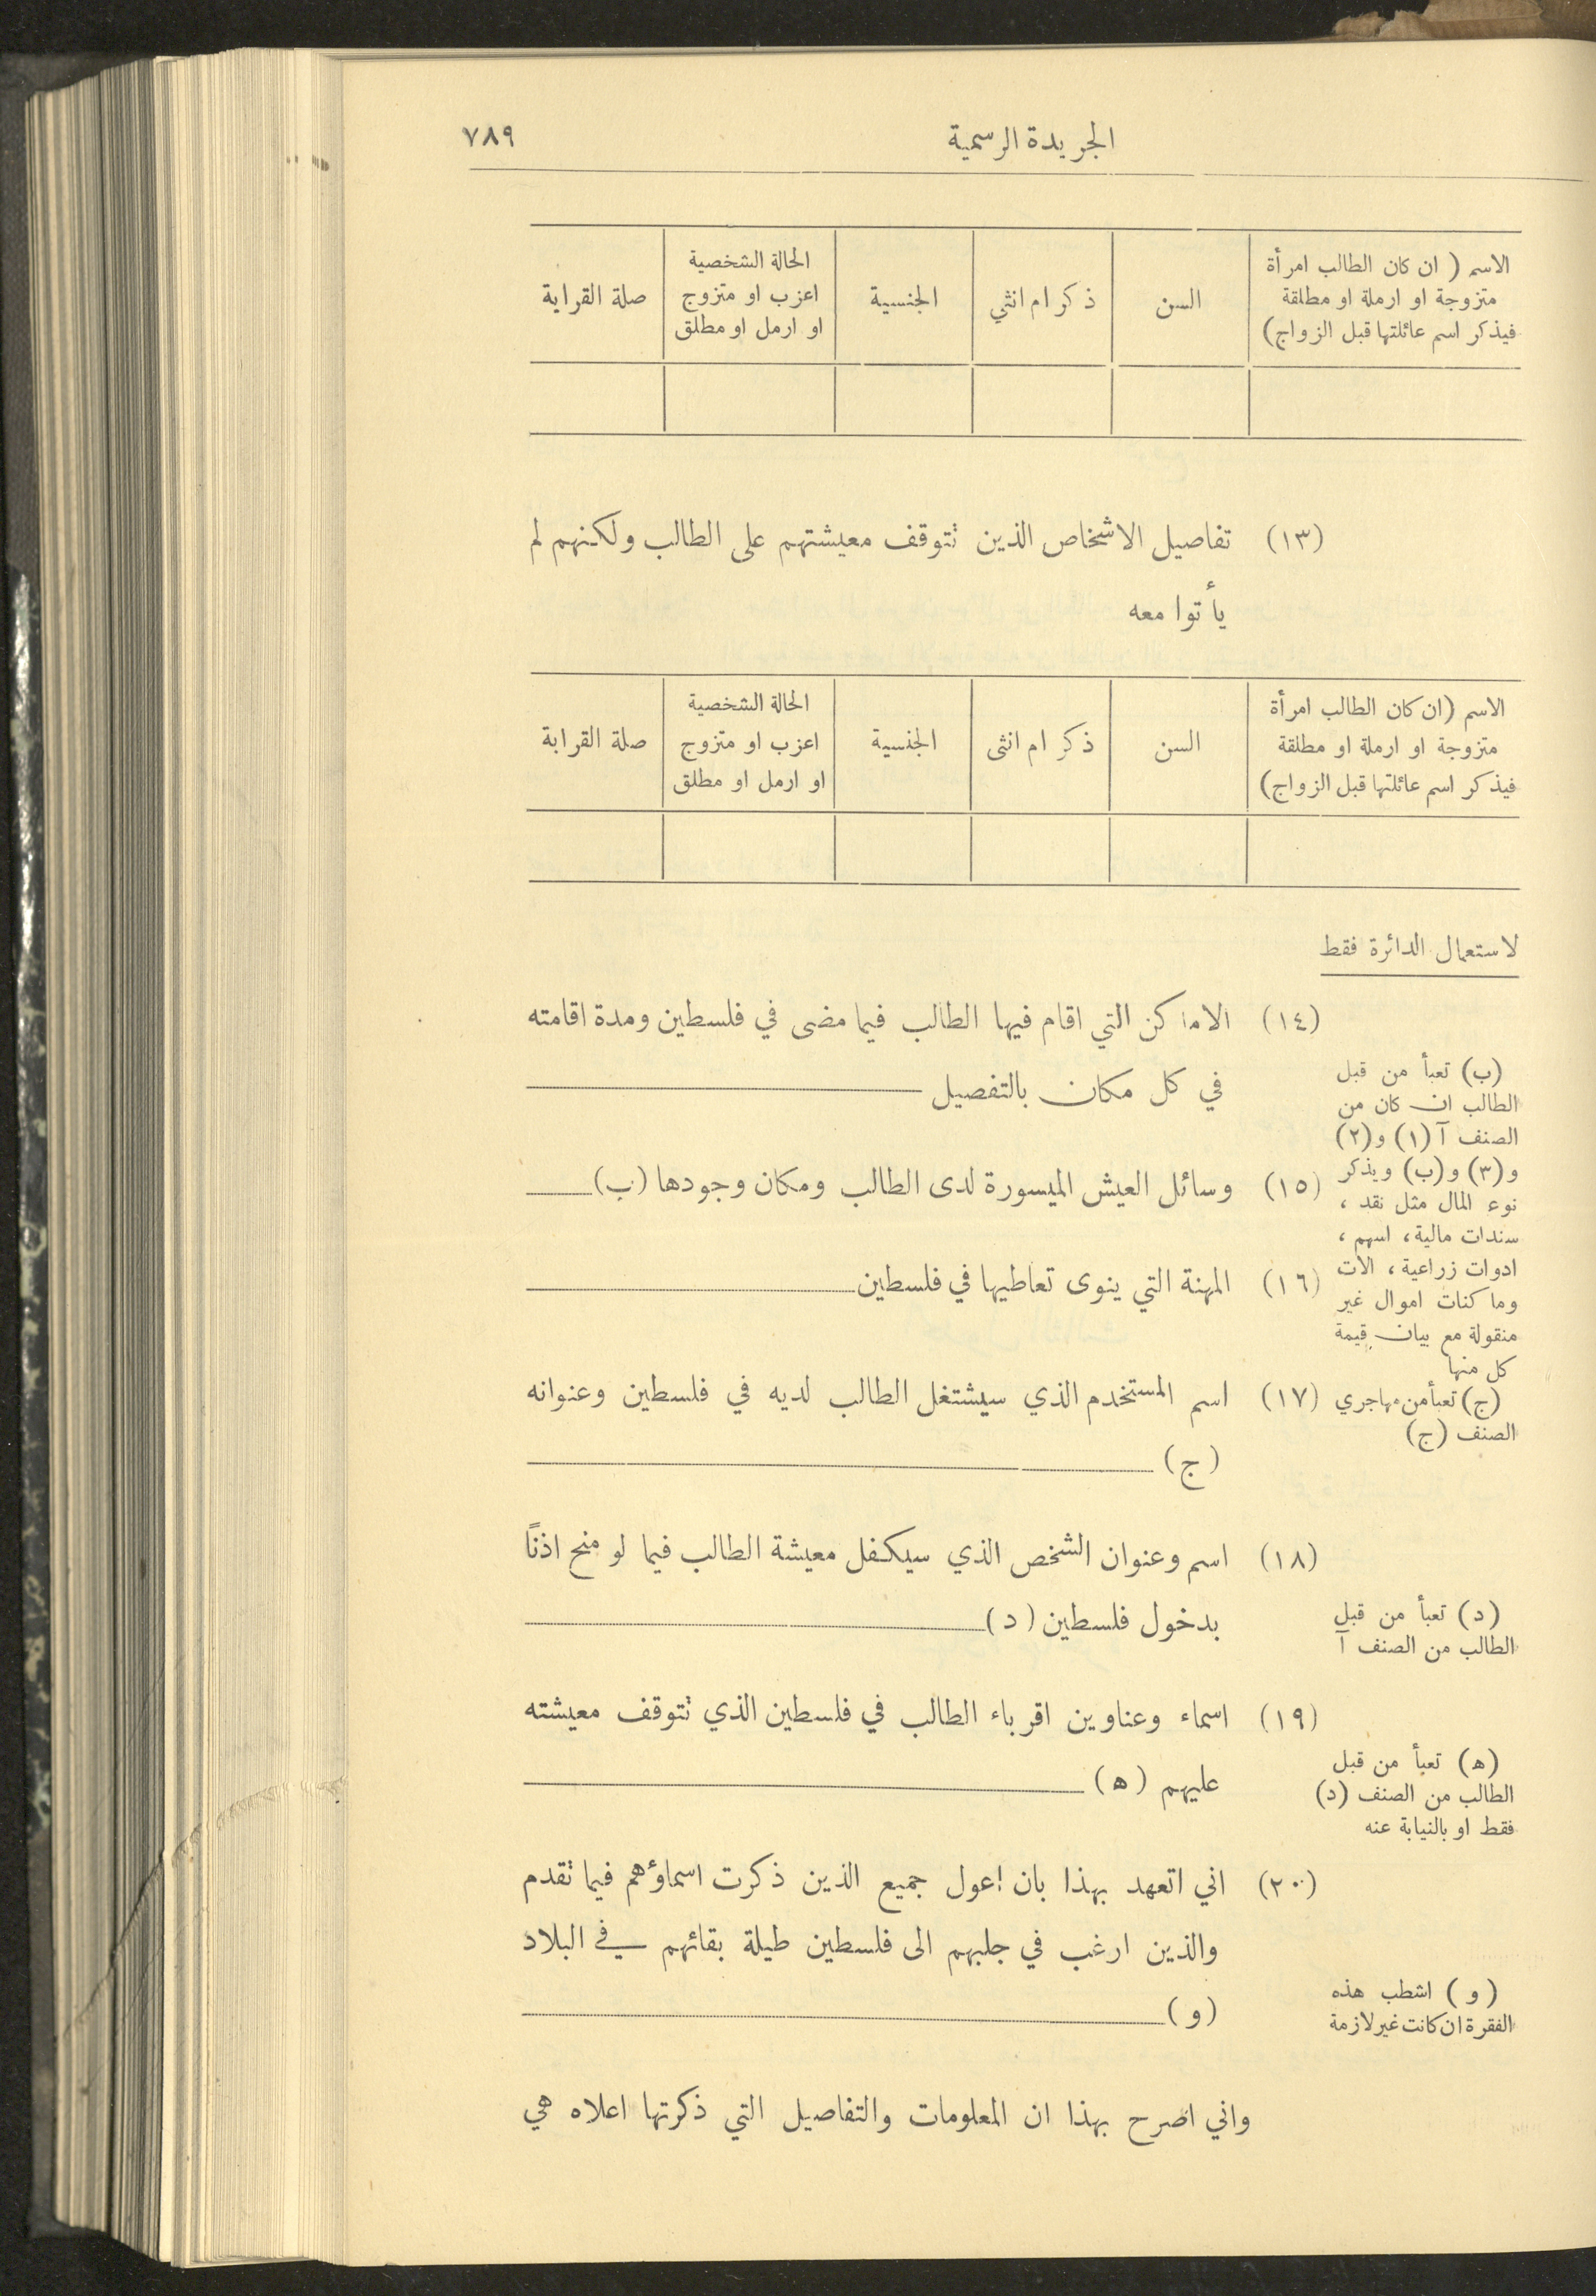 الجريدة الرسمية ٧٨٩
الاسم ( ان كان الطالب امرأة
متزوجة او ارملة او مطلقة
فيذكر اسم عائلتها قبل الزواج)
السن
ذكر ام انثي
الجنسية
الحالة الشخصية
اعزب او متزوج
او ارمل او مطلق
صلة القرابة
(١٣) تفاصيل الاشخاص الذين تتوقف معيشتهم على الطالب ولكنهم لم
يأتوا معه
الاسم (ان كان الطالب امرأة
متزوجة او ارملة او مطلقة
فيذكر اسم عائلتها قبل الزواج)
السن
ذكر ام انثى
الجنسية
الحالة الشخصية
اعزب او متزوج
او ارمل او مطلق
صلة القرابة
لاستعمال الدائرة فقط
(١٤) الاماكن التي اقام فيها الطالب فيما مضى في فلسطين ومدة اقامته
في كل مكان بالتفصيل
(ب) تعبأ من قبل
الطالب ان كان من
الصنف آ (١) و(٢)
و(٣) و(ب) ويذكر
نوع المال مثل نقد ،
سندات مالية، اسهم ،
ادوات زراعية، الات
وماكنات اموال غير
منقولة مع بيان قيمة
كل منها
(١٥) وسائل العيش الميسورة لدى الطالب ومكان وجودها (ب)
(١٦) المهنة التي ينوى تعاطيها في فلسطين
(ج) تعبأ من مهاجري
الصنف (ج)
(١٧) اسم المستخدم الذي سيشتغل الطالب لديه في فلسطين وعنوانه
(ج)
(١٨) اسم وعنوان الشخص الذي سيكفل معيشة الطالب فيما لو منح اذنًا
بدخول فلسطين (د)
(د) تعبأ من قبل
الطالب من الصنف آ
(١٩) اسماء وعناوين اقرباء الطالب في فلسطين الذي تتوقف معيشته
عليهم (ه)
(ه) تعبأ من قبل
الطالب من الصنف (د)
فقط او بالنيابة عنه
(٢٠) اني اتعهد بهذا بان اعول جميع الذين ذكرت اسماؤهم فيما تقدم
والذين ارغب في جلبهم الى فلسطين طيلة بقائهم في البلاد
(و)
(و) اشطب هذه
الفقرة ان كانت غير لازمة
واني اصرح بهذا ان المعلومات والتفاصيل التي ذكرتها اعلاه هي